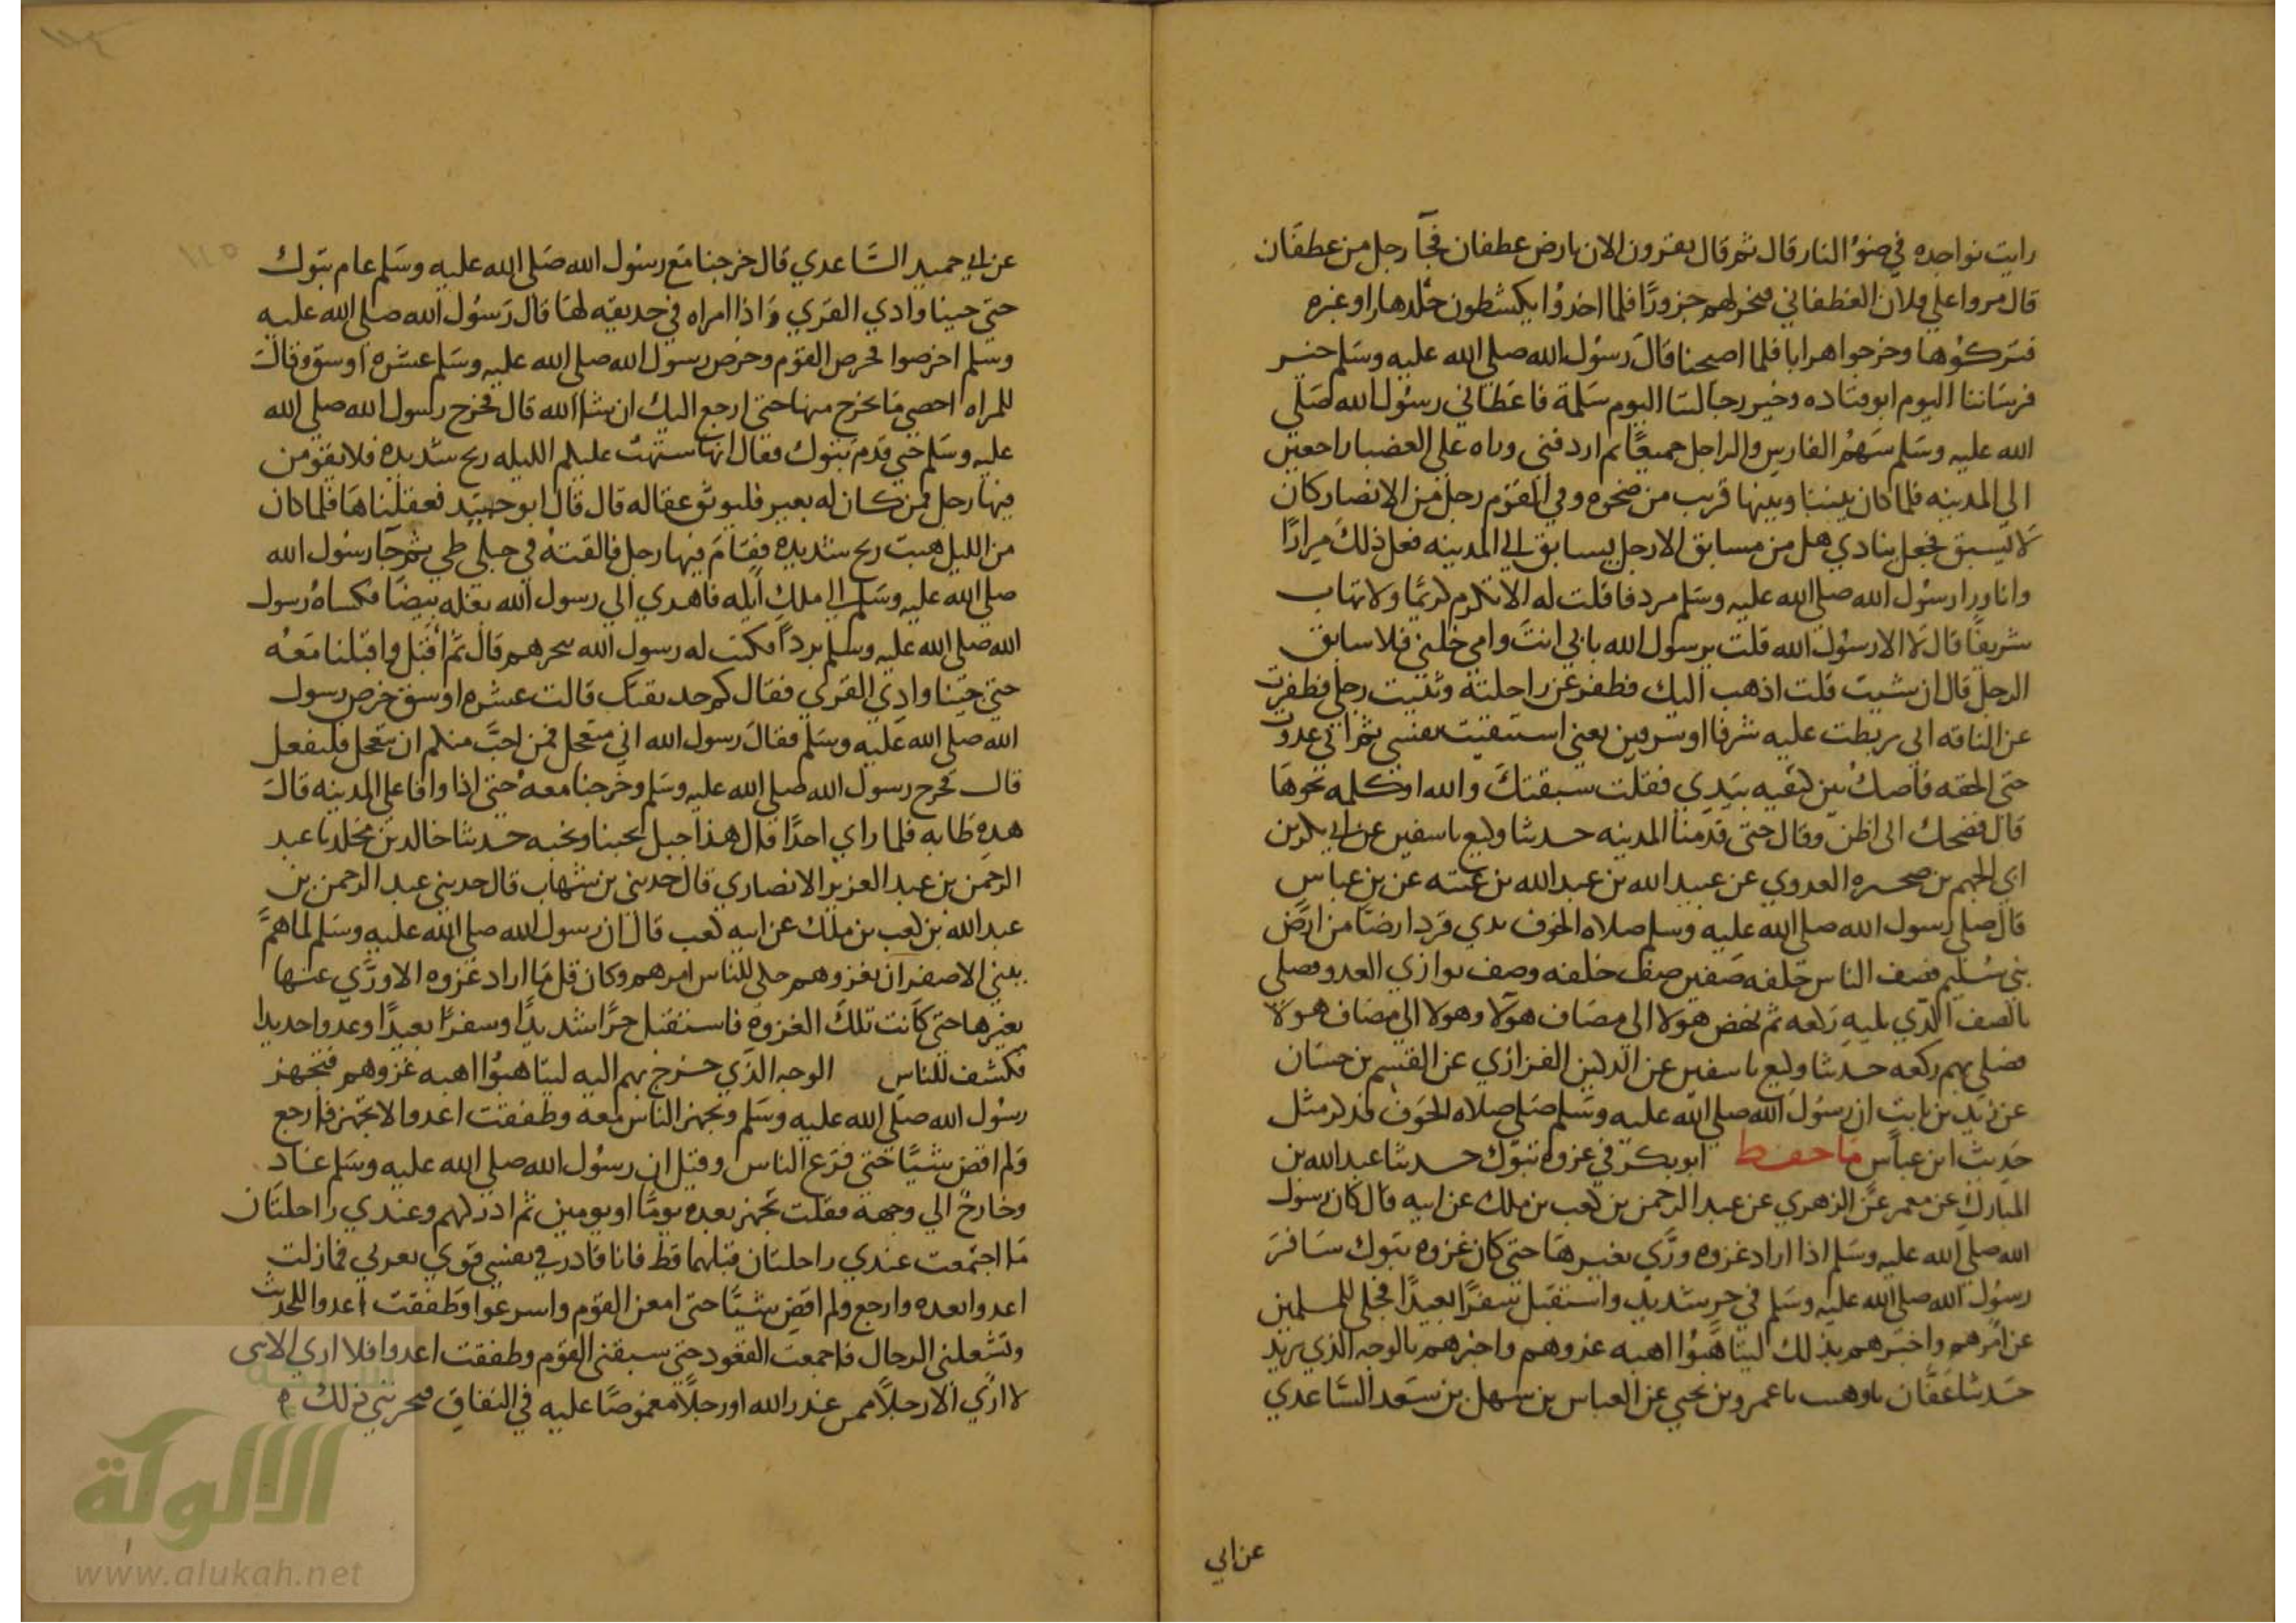 رايت نواجده في ضوء النار قال ثم قال يقرون الان بارض عطفان فجآ رجل من عطفان
قال مروا على فلان الغطفاني فنحر لهم جزورًا فلما اخذوا يكشطون جلدها راو غبره
فتركوها وخرجوا هرابا فلما اصبحنا قال رسول الله صلى الله عليه وسلم خير
فرساننا اليوم ابو قتاده وخير رجالتنا اليوم سلمة فاعطاني رسول الله صلى
الله عليه وسلم سهم الفارس والراجل جميعًا ثم اردفنى وراه على العضبا راجعين
الى المدينه فلما كان بيننا وبينها قريب من ضحوه وفي القوم رجل من الانصار كان
لا يسبق فجعل ينادي هل من مسابق الا رجل يسابق الى المدينه فعل ذلك مرارًا
وانا ورا رسول الله صلى الله عليه وسلم مردفا فقلت له الا تكرم كريمًا ولا تهاب
شريفًا قال لا الا رسول الله قلت يرسول الله بابي انت وامي خلني فلاسابق
الرجل قال ان شيت قلت اذهب اليك فطفر عن راحلته وثنيت رجلي فطفرت
عن الناقه اني ربطت عليه شرفا او شرفين يعني استبقيت نفسي ثم اني عدوت
حتى الحقه فاصك بين كتفيه بيدي فقلت سبقتك والله او كلمه نحوها
قال فضحك الى اظن وقال حتى قدمنا المدينه حدثنا وكيع نا سفين عن ابي بكر بن
ابي الجهم بن صحيره العدوي عن عبيد الله بن عبد الله بن عتبه عن بن عباس
قال صلى رسول الله صلى الله عليه وسلم صلاه الخوف بدي قرد ارضا من ارض
بني سليم فصف الناس خلفه صفين صف خلفه وصف موازي العدو فصلى
بالصف الذي يليه ركعه ثم نهض هولا الى مصاف هولا وهولا الى مصاف هولا
فصلى بهم ركعه حدثنا وكيع نا سفين عن الركين الفزازي عن القسم بن حسان
عن زيد بن ثابت ان رسول الله صلى الله عليه وسلم صلى صلاه الخوف فذكر مثل
حديث ابن عباس ما حفظ ابو بكر في غزوه تبوك حدثنا عبد الله بن
المبارك عن معمر عن الزهري عن عبد الرحمن بن كعب بن ملك عن ابيه قال كان رسول
الله صلى الله عليه وسلم اذا اراد غزوه ورى بغيرها حتى كان غزوه تبوك سافر
رسول الله صلى الله عليه وسلم في حر شديد واستقبل سفرًا بعيدًا فجلى للمسلمين
عن امرهم واخبرهم بذلك ليتاهبوا اهبه عدوهم واخبرهم بالوجه الذي يريد
حدثنا عفان نا وهيب نا عمرو بن يحيى عن العباس بن سهل بن سعد الساعدي
عن ابي
عن ابي حميد الساعدي قال خرجنا مع رسول الله صلى الله عليه وسلم عام تبوك
حتى جينا وادي القرى واذا امراه في حديقه لها قال رسول الله صلى الله عليه
وسلم اخرصوا فخرص القوم وخرص رسول الله صلى الله عليه وسلم عشره اوسق وقال
للمراه احصي ما يخرج منها حتى ارجع اليك ان شا الله قال فخرج رسول الله صلى الله
عليه وسلم حتى قدم تبوك فقال انها ستهب عليكم الليله ريح شديده فلا يقومن
فيها رجل فمن كان له بعير فليوثق عقاله قال قال ابو حميد فعقلناها فلما كان
من الليل هبت ريح شديده فقام فيها رجل فالقته في جبلي طي ثم جآ رسول الله
صلى الله عليه وسلم الى ملك ايله فاهدي الى رسول الله بغله بيضا فكساه رسول
الله صلى الله عليه وسلم بردًا وكتب له رسول الله بحرهم قال ثم اقبل واقبلنا معه
حتى جينا وادي القرى فقال كم حديقتك قالت عشره اوسق خرص رسول
الله صلى الله عليه وسلم فقال رسول الله اني متعجل فمن احب منكم ان يتعجل فليفعل
قال فخرج رسول الله صلى الله عليه وسلم وخرجنا معه حتى اذا وافا على المدينه قال
هذه طابه فلما راي احدًا قال هذا جبل يحبنا ونحبه حدثنا خالد بن مخلد نا عبد
الرحمن بن عبد العزيز الانصاري قال حدثني بن شهاب قال حدثني عبد الرحمن بن
عبد الله بن كعب بن ملك عن ابيه كعب قال ان رسول الله صلى الله عليه وسلم لما هم
ببني الاصفر ان يغزوهم جلى للناس امرهم وكان قل ما اراد غزوه الا ورى عنها
بغيرها حتى كانت تلك الغزوه فاستقبل حرًا شديدًا وسفرًا بعيدًا وعدوا حديدا
فكشف للناس الوجه الذي خرج بهم اليه ليتاهبوا اهبه غزوهم فتجهز
رسول الله صلى الله عليه وسلم وتجهز الناس معه وطفقت اغدوا لاتجهز فارجع
ولم اقض شيًا حتى فرغ الناس وقيل ان رسول الله صلى الله عليه وسلم غاد
وخارج الى وجهه فقلت تجهز بعده يومًا او يومين ثم ادركهم وعندي راحلتان
ما اجتمعت عندي راحلتان قبلهما قط فانا قادر في نفسي قوي بعدتي فمازلت
اغدوا بعده وارجع ولم اقض شيًا حتى امعن القوم واسرعوا وطفقت اغدوا للحديث
وتشغلني الرحال فاجمعت القعود حتى سبقني القوم وطفقت اغدوا فلا اري الاسى
لا اري الا رجلًا ممن عذر الله او رجلًا مغموصًا عليه في النفاق فيحزنني ذلك ه
الألوكة
www.alukah.net